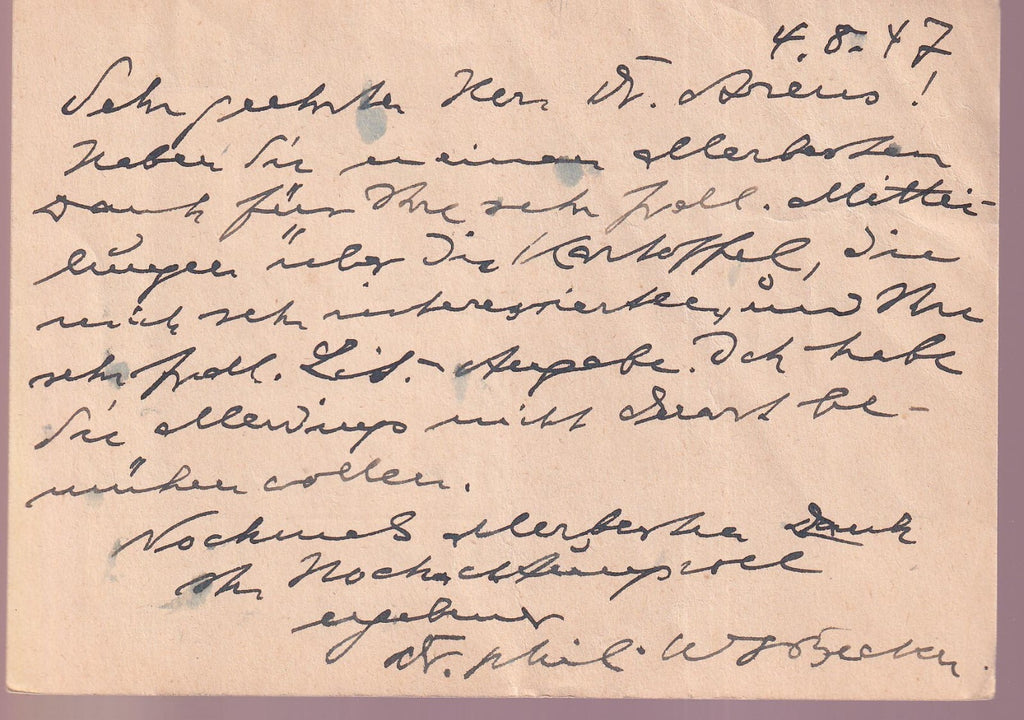 4.8.47
Sehr geehrter Herr Dr. Arens!
Haben Sie meinen allerbesten
Dank für Ihre sehr frdl. Mittei-
lungen über die Kartoffel, die
mich sehr interessierte, und Ihre
sehr frdl. Lit.-Angabe. Ich habe
Sie allerdings nicht derart be-
mühen wollen.
Nochmals allerbesten Dank
Ihr Hochachtungsvoll
ergebener
Dr. phil. W